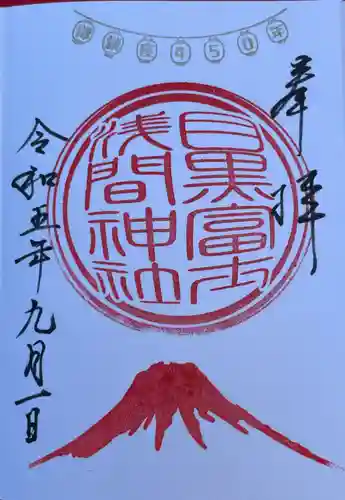 御鎮座450年
奉拝
目黒富士
浅間神社
令和五年九月一日